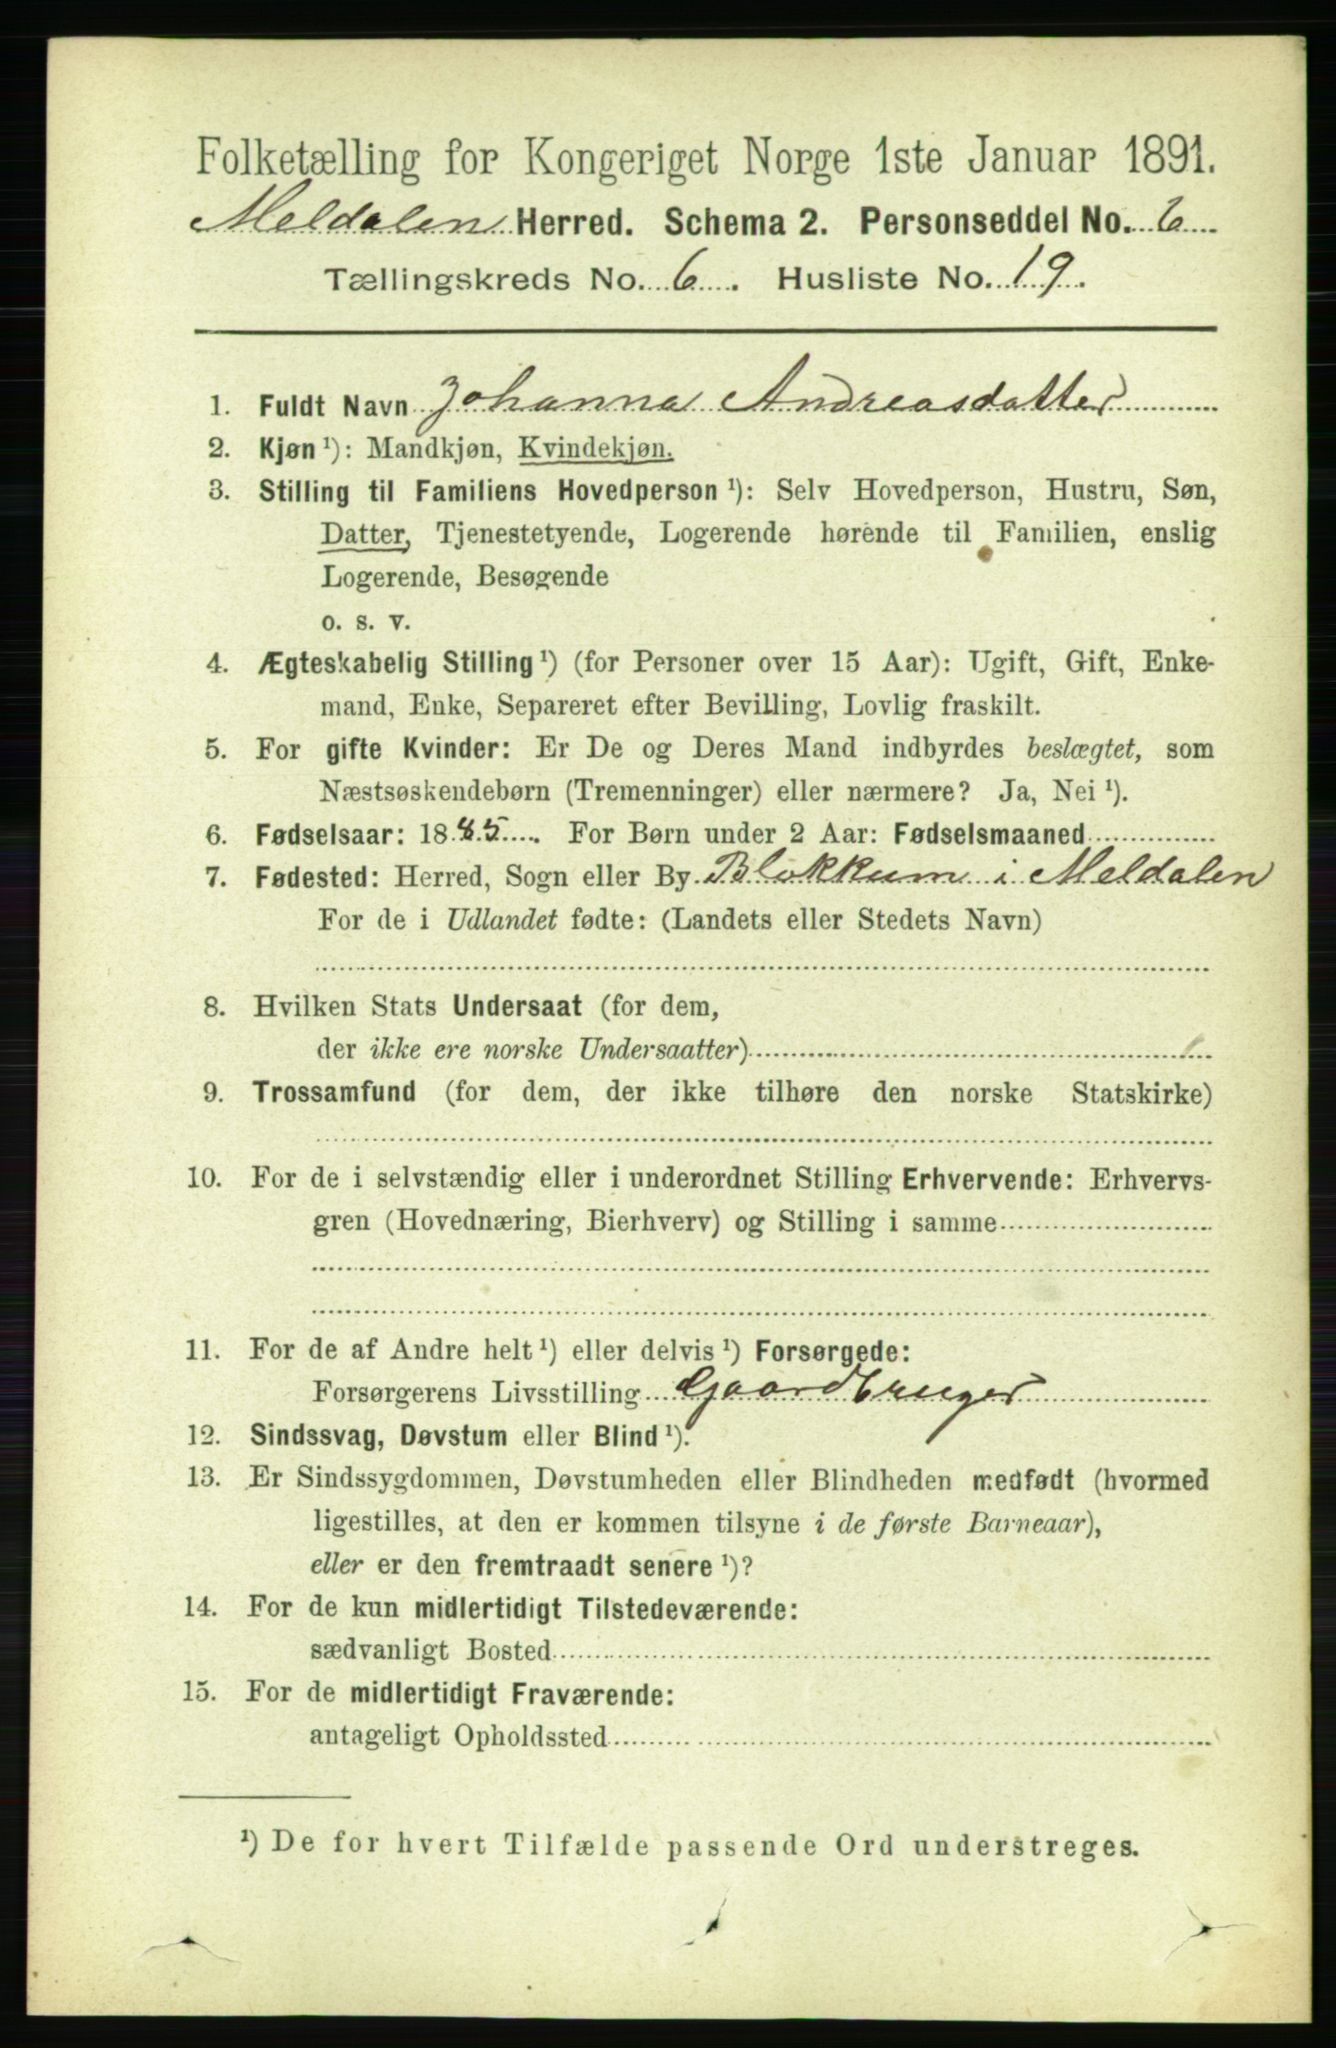 Folketælling for Kongeriget Norge 1ste Januar 1891.
Meldalen Herred. Schema 2. Personseddel No. 6
Tællingskreds No. 6. Husliste No. 19.
1. Fuldt Navn Johanna Andreasdatter
2. Kjøn ¹): Mandkjøn, Kvindekjøn.
3. Stilling til Familiens Hovedperson ¹): Selv Hovedperson, Hustru, Søn,
Datter, Tjenestetyende, Logerende hørende til Familien, enslig
Logerende, Besøgende
o. s. v.
4. Ægteskabelig Stilling ¹) (for Personer over 15 Aar): Ugift, Gift, Enke-
mand, Enke, Separeret efter Bevilling, Lovlig fraskilt.
5. For gifte Kvinder: Er De og Deres Mand indbyrdes beslægtet, som
Næstsøskendebørn (Tremenninger) eller nærmere? Ja, Nei ¹).
6. Fødselsaar: 1885. For Børn under 2 Aar: Fødselsmaaned
7. Fødested: Herred, Sogn eller By Blokkum i Meldalen
For de i Udlandet fødte: (Landets eller Stedets Navn)
8. Hvilken Stats Undersaat (for dem,
der ikke ere norske Undersaatter)
9. Trossamfund (for dem, der ikke tilhøre den norske Statskirke)
10. For de i selvstændig eller i underordnet Stilling Erhvervende: Erhvervs-
gren (Hovednæring, Bierhverv) og Stilling i samme
11. For de af Andre helt ¹) eller delvis ¹) Forsørgede:
Forsørgerens Livsstilling Gaardbruger
12. Sindssvag, Døvstum eller Blind ¹).
13. Er Sindssygdommen, Døvstumheden eller Blindheden medfødt (hvormed
ligestilles, at den er kommen tilsyne i de første Barneaar),
eller er den fremtraadt senere ¹)?
14. For de kun midlertidigt Tilstedeværende:
sædvanligt Bosted
15. For de midlertidigt Fraværende:
antageligt Opholdssted
¹) De for hvert Tilfælde passende Ord understreges.